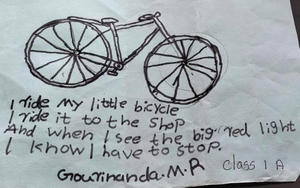 I ride my little bicycle
I ride it to the shop
And when I see the big red light
I know I have to stop.
Gourinanda.M.R
Class 1 A